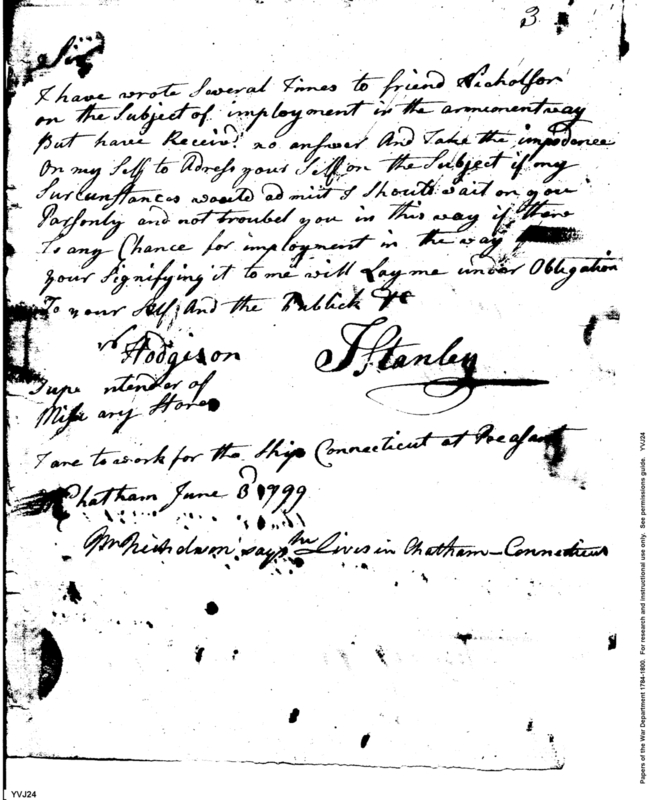 3
Sir
I have wrote Several Times to friend Nicholson
on the Subject of imployment in the armement way
But have Receivd. no answer And Take the impodence
On my Self to Adress your Self on the Subject if my
Surcunstances would admit I Should wait on you
Parsonly and not troubel you in this way if there
Is any Chance for imployment in the way
your Signifying it to me will Lay me under Obligation
To your Self And the Publick &c
Hodgison
JStanley
Supe ntender of
Mile ary Stores
I are to work for the Ship Connecticut at Preasant
Chatham June 3 1799
says he Lives in Chatham - Connecticut
Papers of the War Department 1784-1800. For research and instructional use only. See permissions guide. YVJ24
YVJ24